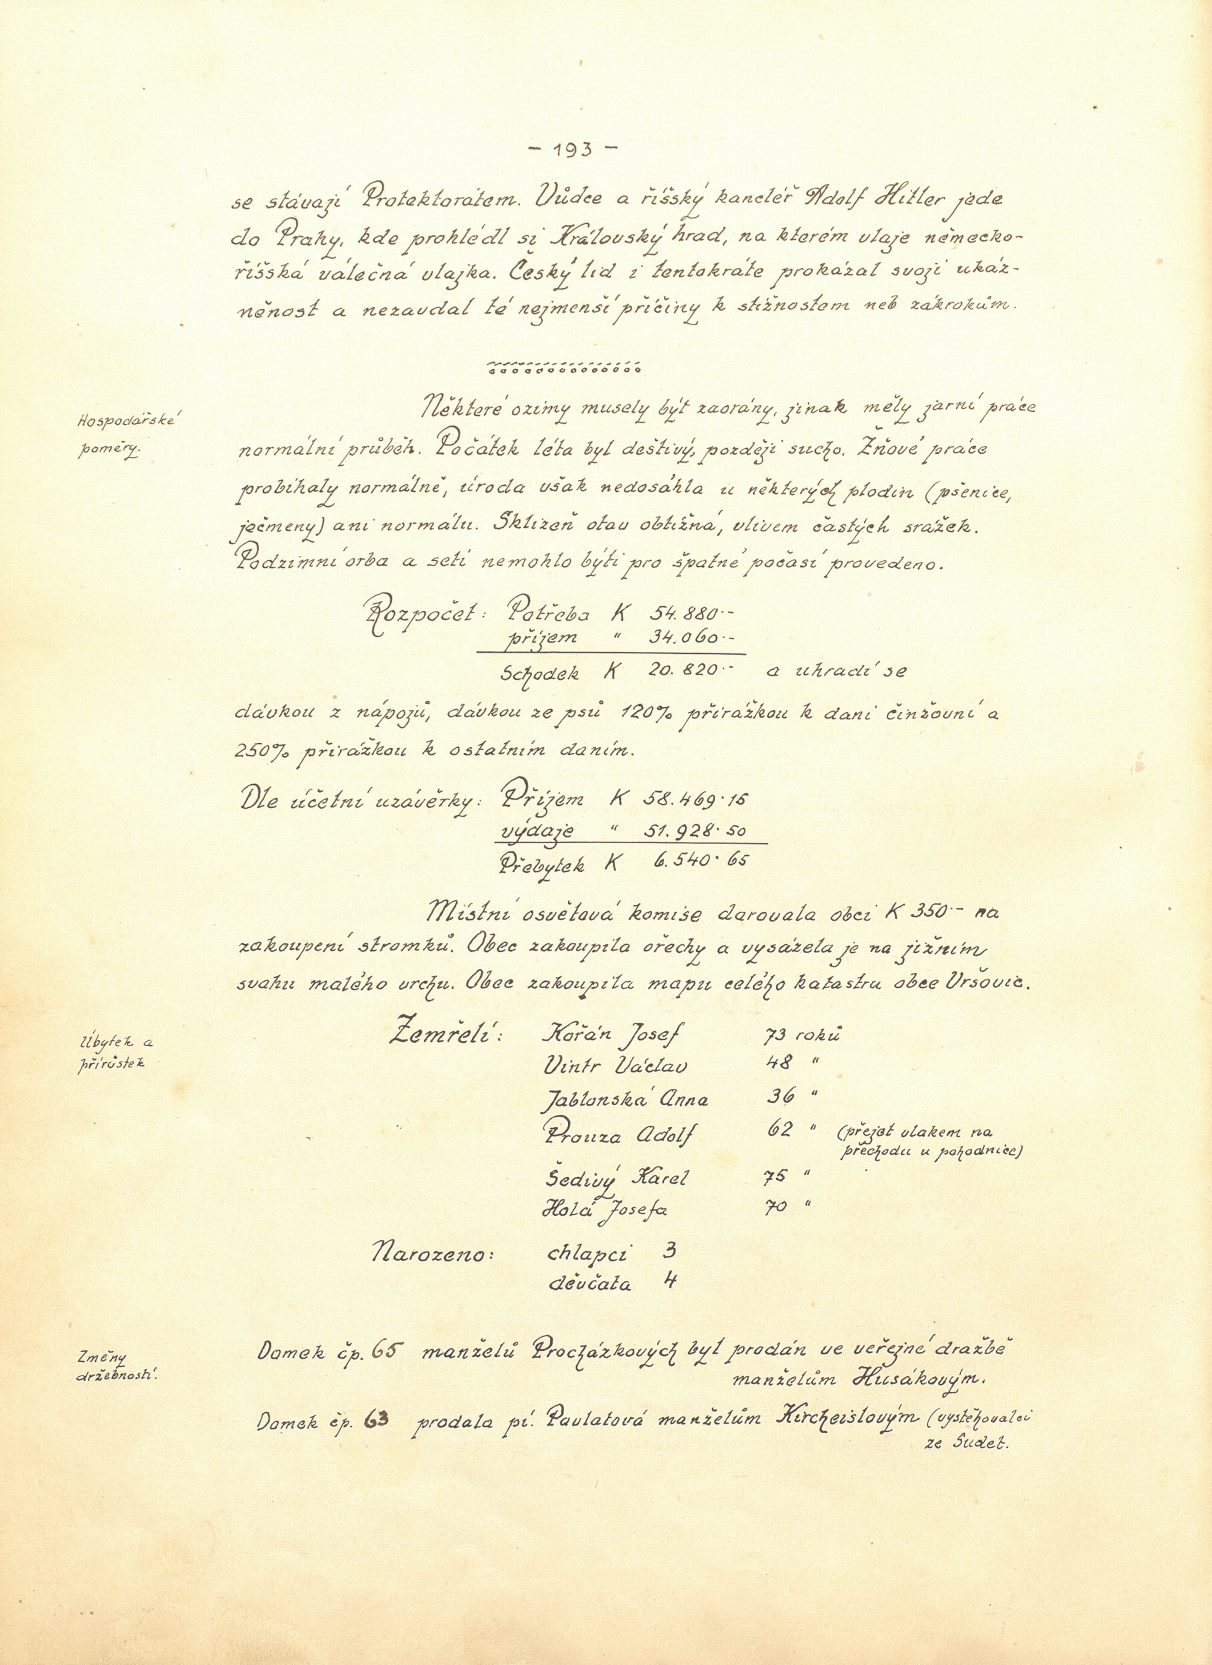 – 193 –
se stávají Protektorátem. Vůdce a říšský kancléř Adolf Hitler jede
do Prahy, kde prohlédl si Královský hrad, na kterém vlaje německo-
říšská válečná vlajka. Český lid i tentokráte prokázal svoji ukáz-
něnost a nezavdal té nejmenší příčiny k stížnostem neb zákrokům.
Hospodářské
poměry.
Některé ozimy musely být zaorány, jinak měly jarní práce
normální průběh. Počátek léta byl deštivý, později sucho. Žňové práce
probíhaly normálně, úroda však nedosáhla u některých plodin (pšenice,
ječmeny) ani normálu. Sklizeň otav obtížná, vlivem častých srážek.
Podzimní orba a setí nemohlo býti pro špatné počasí provedeno.
Rozpočet: Potřeba K 54.880·-
příjem " 34.060·-
Schodek K 20.820·- a uhradí se
dávkou z nápojů, dávkou ze psů 120% přirážkou k dani činžovní a
250% přirážkou k ostatním daním.
Dle účetní uzávěrky: Příjem K 58.469·15
výdaje " 51.928·50
Přebytek K 6.540·65
Místní osvětová komise darovala obci K 350·- na
zakoupení stromků. Obec zakoupila ořechy a vysázela je na jižním
svahu malého vrchu. Obec zakoupila mapu celého katastru obce Vršovic.
Úbytek a
přírůstek
Zemřelí: Kořán Josef 73 roků
Vintr Václav 48 "
Jablonská Anna 36 "
Prouza Adolf 62 " (přejet vlakem na
přechodu u pohodnice)
Šedivý Karel 75 "
Holá Josefa 70 "
Narozeno: chlapci 3
děvčata 4
Změny
držebností.
Domek čp. 65 manželů Procházkových byl prodán ve veřejné dražbě
manželům Husákovým.
Domek čp. 63 prodala pí. Pavlatová manželům Kircheislovým (vystěhovalci
ze Sudet.